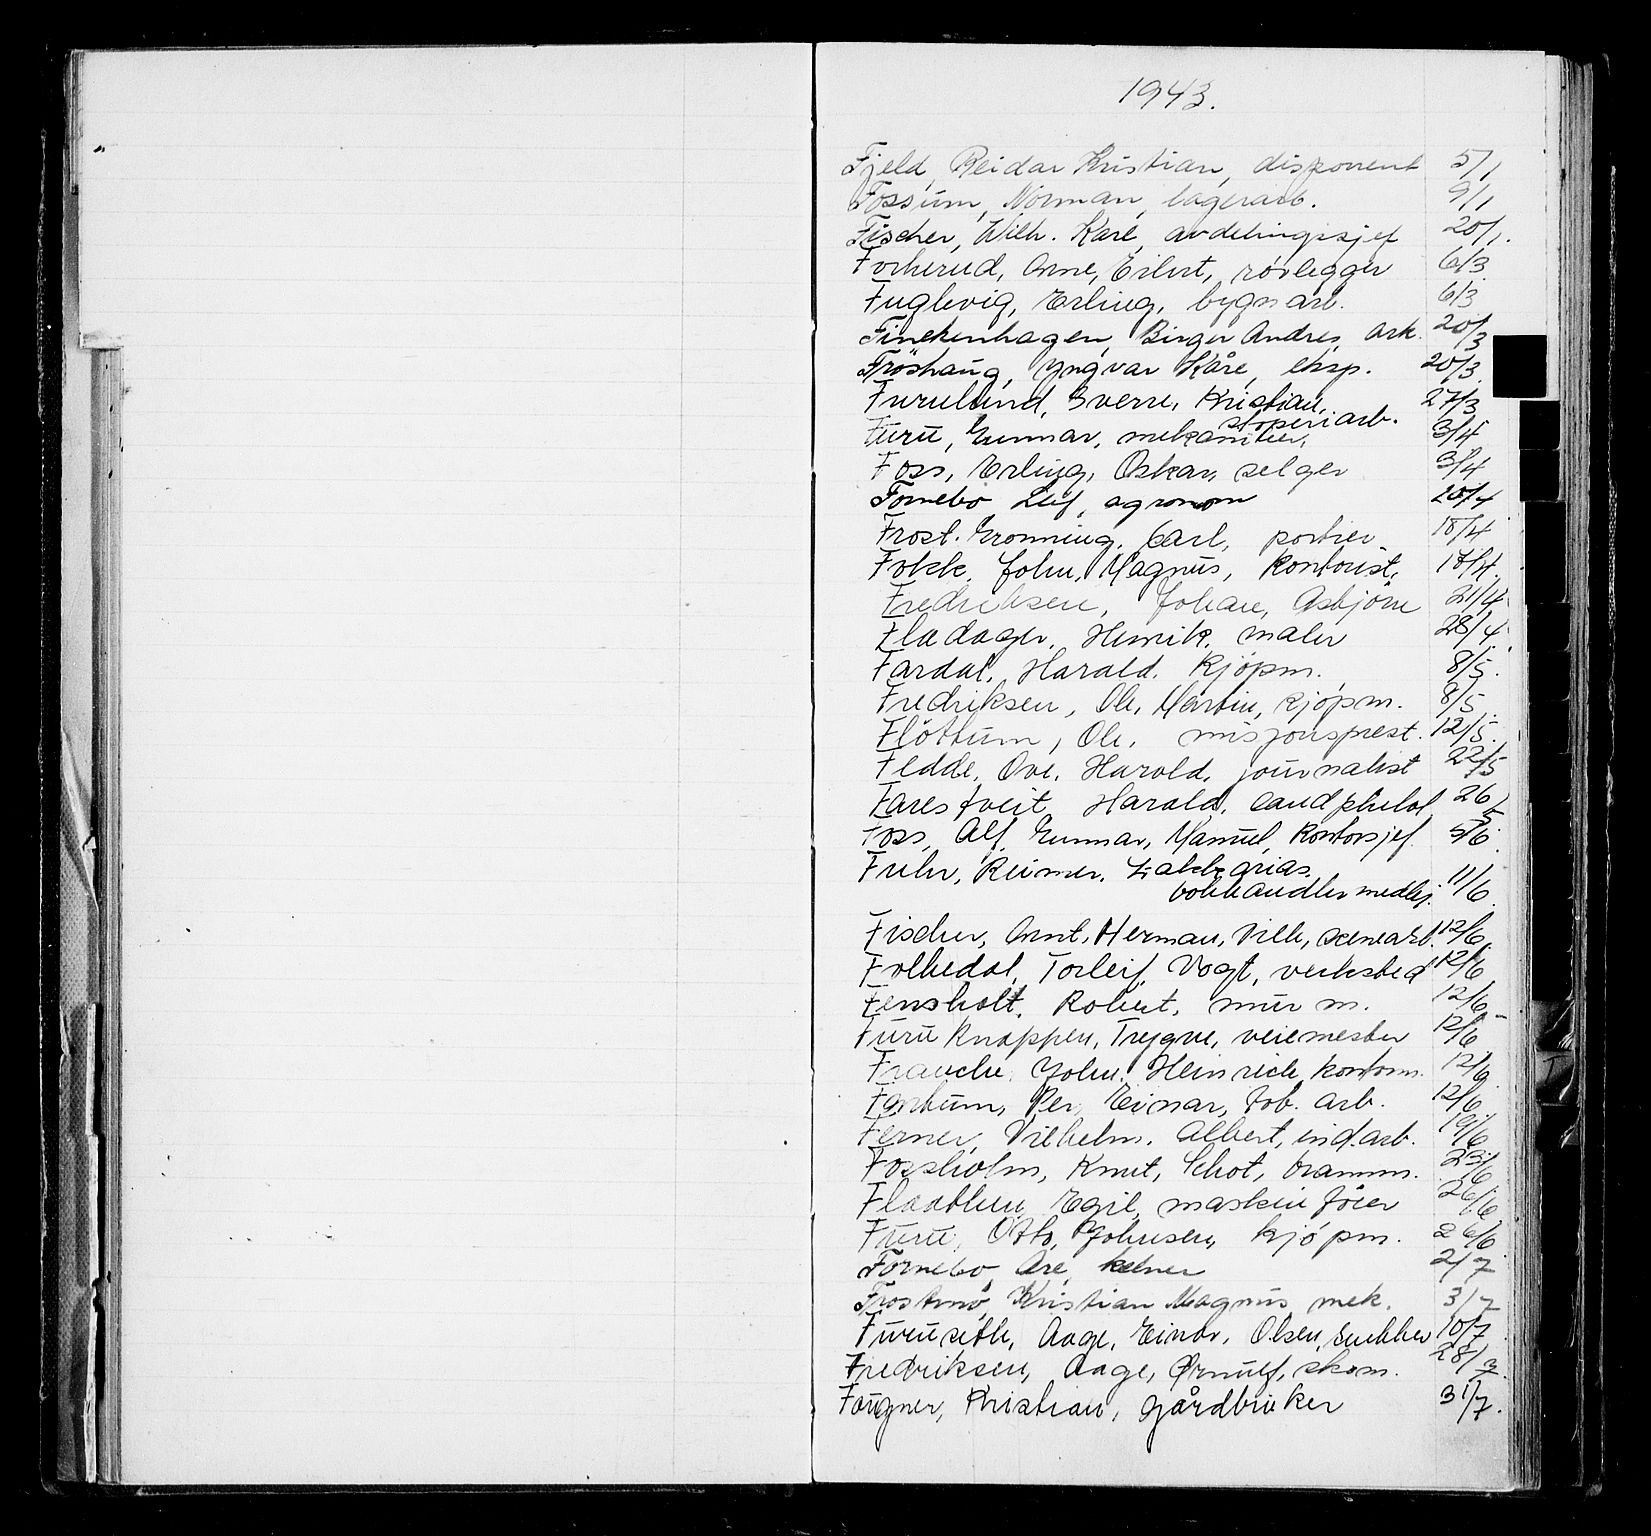 1943.
Fjeld, Reidar Kristian, disponent 5/1
Fossum, Norman, lagerarb. 9/1
Fischer, Wilh. Karl, avdelingssjef 20/1.
Forherud, Arne, Eilert, rørlegger 6/3
Fuglevig, Erling, bygn arb. 6/3
Finckenhagen, Birger Andres, ark. 20/3
Frøshaug, Yngvar Kåre, eksp. 20/3
Furulund, Sverre, Kristian, 27/3
støperiarb.
Furu, Gunnar, mekaniker, 3/4
Foss, Erling, Oskar, selger 3/4
Fornebo Leif, agronom 20/4
Frost. Gronning, Carl, portier 18/4
Fokk, John, Magnus, kontorist, 18/4.
Fredriksen, Johan, Asbjørn 21/4
Fladager, Henrik, maler 28/4
Fardal, Harald, kjøpm. 8/5.
Fredriksen, Ole, Martin, kjøpm. 8/5
Fløttum, Ole, misjonsprest. 12/5.
Fedde, Ove, Harald, journalist 22/5
Farestveit, Harald, cand philol 26/5
Foss, Alf, Gunnar, Manuel, kontorsjef 5/6
Fuhr, Reimer, Zakkarias,
bokhandler medhj. 11/6.
Fischer, Arnt, Herman, Vilh, scenearb. 12/6.
Folkedal, Torleif, Vogt, verksbed 12/6
Fensholt, Robert, mur m. 12/6
Furu Knappen, Trygve, veiemester 12/6
Franche, John, Heinrich, kontorm. 12/6
Fortum, Per, Einar, fob. arb. 12/6
Ferner, Vilhelm, Albert, ind.arb. 19/6
Fossholm, Knut, Schot, bramm. 23/6
Flaathen, Egil, maskin føier 26/6
Furu, Otto, Johnsen, kjøpm. 26/6
Fornebo, Are, kelner 2/7
Frostmo, Kristian Magnus, mek. 3/7
Furuseth, Aage, Einar, Olsen, snekker 10/7
Fredriksen, Aage, Ørnulf, skom. 28/7
Faugner, Kristian, gårdbruker 31/7.